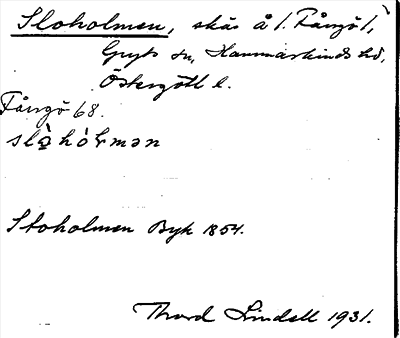 Sloholmen, skär å /: Fångö /,
Gryts sn, Hammarkinds hd,
Östergötl l.
Fångö 68.
slò̜hólmən
Stoholmen Byk 1854.
Thord Lindell 1931.